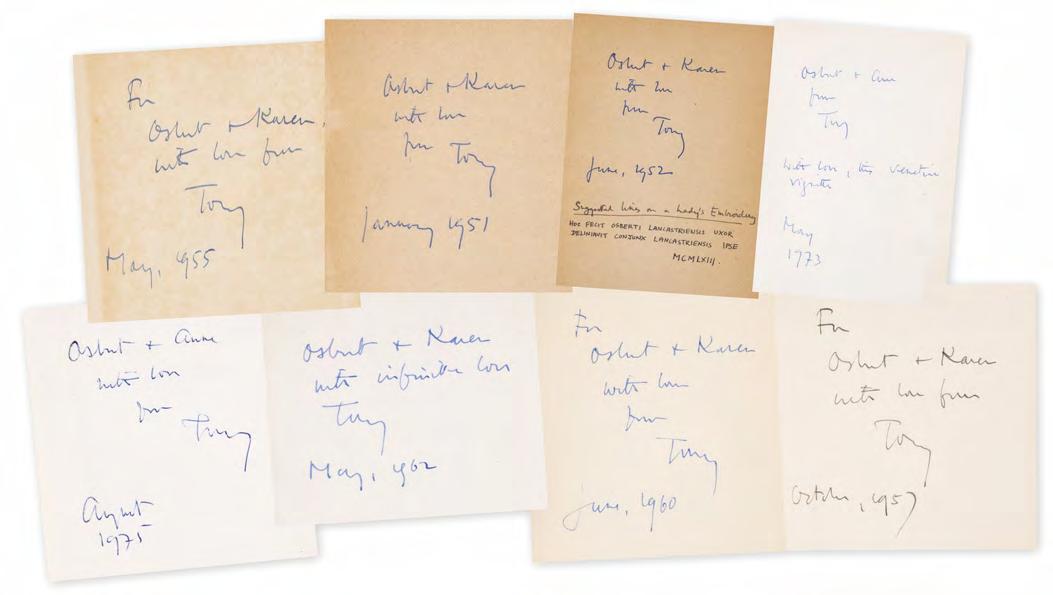 For
Osbert + Karen,
with love from
Tony
May, 1955
Osbert + Karen
with love
from Tony
January 1951
Osbert + Karen
with love
from
Tony
June, 1952
Suggested lines on a Lady's Embroidery
HOC FECIT OSBERTI LANCASTRIENSIS UXOR
DELINIAVIT CONJUNX LANCASTRIENSIS IPSE
MCMLXIII.
Osbert + Anne
from
Tony
with love, this venetian
vignette
May
1973
Osbert + Anne
with love
from
Tony
August
1975
Osbert + Karen
with infinite love
Tony
May, 1962
For
Osbert + Karen
with love
from
Tony
June, 1960
For
Osbert + Karen
with love from
Tony
October, 1957